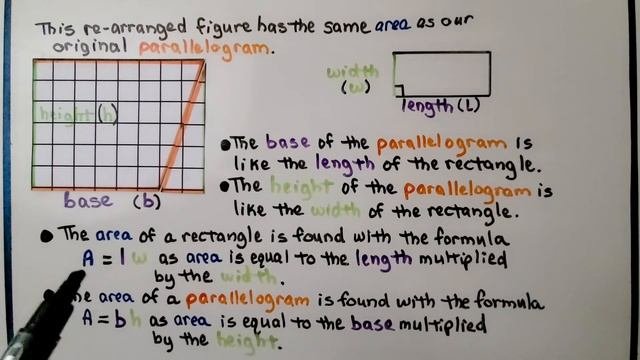 This re-arranged figure has the same area as our
original parallelogram.
height (h)
base (b)
width
(w)
length (L)
• The base of the parallelogram is
like the length of the rectangle.
• The height of the parallelogram is
like the width of the rectangle.
• The area of a rectangle is found with the formula
A = l w as area is equal to the length multiplied
by the width.
The area of a parallelogram is found with the formula
A = b h as area is equal to the base multiplied
by the height.